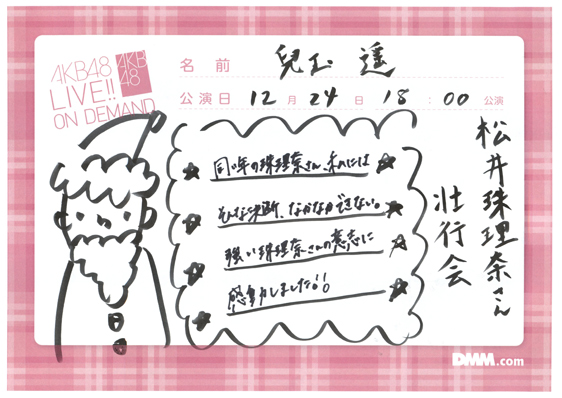 AKB48
LIVE!!
ON DEMAND
AKB
48
名前 兒玉 遥
公演日 12月24日 18:00 公演
松井珠理奈さん
壮行会
同い年の珠理奈さん、私には
そんな決断、なかなかできない。
強い珠理奈さんの意志に
感動しました!!
DMM.com